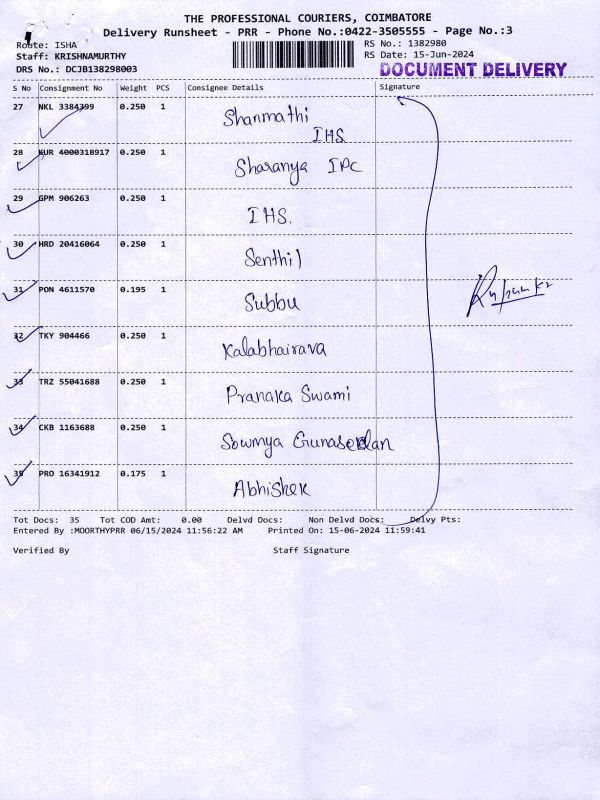 THE PROFESSIONAL COURIERS, COIMBATORE
Delivery Runsheet - PRR - Phone No.:0422-3505555 - Page No.:3
Route: ISHA
RS No.: 1382980
Staff: KRISHNAMURTHY
RS Date: 15-Jun-2024
DRS No.: DCJB138298003
DOCUMENT DELIVERY
S No Consignment No Weight PCS Consignee Details Signature
27 NKL 3384399 0.250 1 Shanmathi
IHS
28 KUR 4000318917 0.250 1 Sharanya IPC
29 GPM 906263 0.250 1 IHS.
30 HRD 20416064 0.250 1 Senthil
31 PON 4611570 0.195 1 Subbu
32 TKY 904466 0.250 1 Kalabhairava
33 TRZ 55041688 0.250 1 Pranaka Swami
34 CKB 1163688 0.250 1 Sowmya
35 PRO 16341912 0.175 1 Abhishek
Tot Docs: 35 Tot COD Amt: 0.00 Delvd Docs: Non Delvd Docs: Delvy Pts:
Entered By :MOORTHYPRR 06/15/2024 11:56:22 AM Printed On: 15-06-2024 11:59:41
Verified By Staff Signature